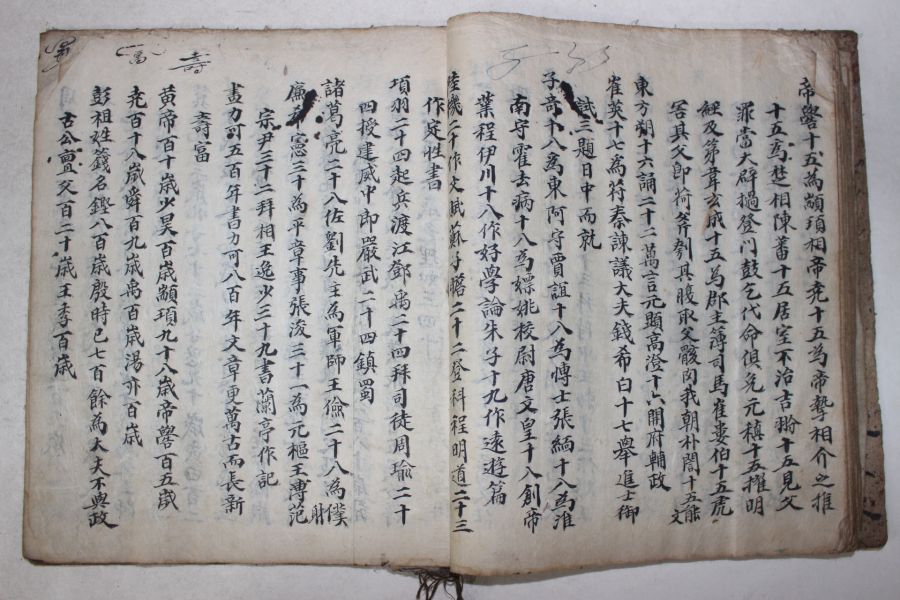 帝嚳十五為顓頊相帝堯十五為帝摯相介之推
十五為楚相陳蕃十五居室不治吉翂十五見父
罪當大辟撾登聞鼓乞代命俱免元稹十五擢明
經及第韋玄成十五為郡主簿司馬崔婁伯十五虎
害其父即荷斧刳其腹取父骸肉我朝朴誾十五能文
東方朔十六誦二十二萬言元顯高澄十六開府輔政
崔英十七為苻秦諫議大夫錢希白十七舉進士御
試三題日中而就
子奇十八為東阿守賈誼十八為博士張緬十八為淮
南守霍去病十八為嫖姚校尉唐文皇十八創帝
業程伊川十八作好學論朱子十九作遠遊篇
陸機二十作文賦蘇子瞻二十二登科程明道二十三
作定性書
項羽二十四起兵渡江鄧禹二十四拜司徒周瑜二十
四授建威中郎嚴武二十四鎮蜀
諸葛亮二十八佐劉先主為軍師王儉二十八為僕
廉希憲三十為平章事張浚三十一為元樞王溥范
宗尹三十二拜相王逸少三十九書蘭亭作記
畫力可五百年書力可八百年文章更萬古而長新
壽富
黃帝百十歲少昊百歲顓頊九十八歲帝嚳百五歲
堯百十八歲舜百九歲禹百歲湯亦百歲
彭祖姓籛名鏗八百歲殷時已七百餘為大夫不與政
古公亶父百二十歲王季百歲
壽